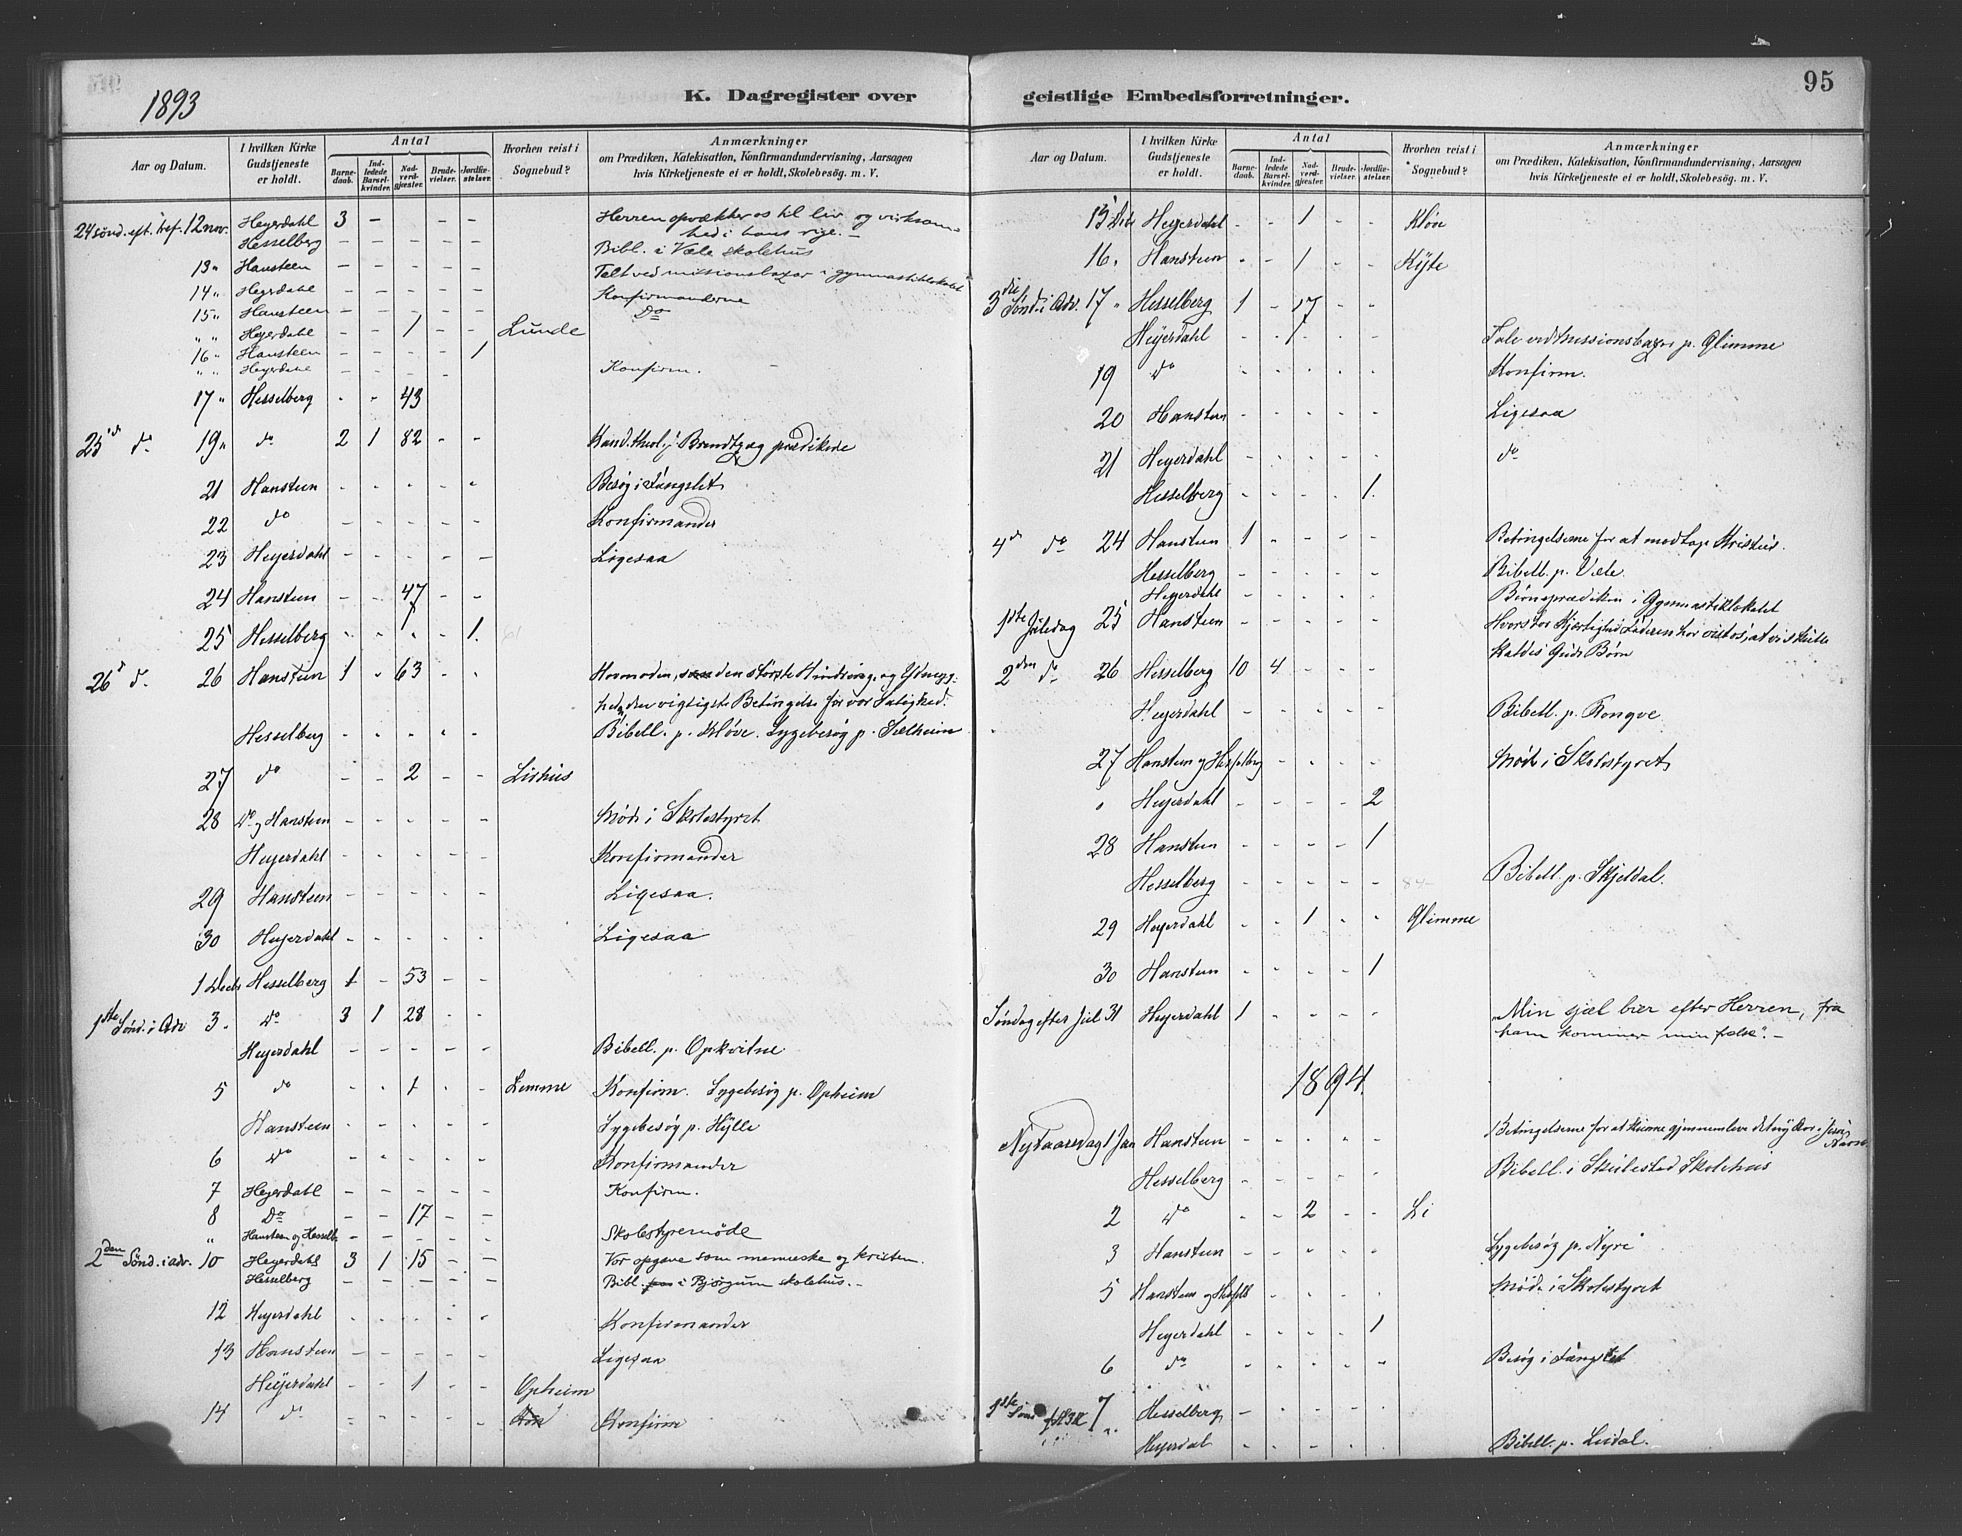 1893
K. Dagregister over
Aar og Datum. I hvilken Kirke Gudstjeneste er holdt. Antal Barnedaab. Indledede Barselkvinder. Nadverdgjester. Brudevielser. Jordfæstelser. Hvorhen reist i Sognebud? Anmærkninger om Prædiken, Katekisation, Konfirmandundervisning, Aarsagen hvis Kirketjeneste ei er holdt, Skolebesøg. m. V.
24 sønd. eft. tref. 12 nov. Heyerdahl 3 - - - Herren opvækker os til liv og virksom=
hed i hans rige. -
Hesselberg - - - - - Bibl. i Væle skolehus
13 " Hansteen - - - - - Talt ved missionsbazar i gymnastiklokalet
14 " Heyrdahl - - - - - Konfirmanderne
15 " Hansteen - - - - - Do
" " Heyerdahl - - 1 - - Lunde
16 " Hansteen - - - - 1
" " Heyerdahl - - - - - Konfirm.
17 " Hesselberg - - 43
25d do 19 " do 2 1 82 - - Kand. theol. J. Brendtzæg prædikede
21 Hansteen - - - - - Besøg i Fængslet
22 do - - - - - Konfirmander
23 Heyerdahl - - - - - Ligesaa
24 Hansteen - - 47 - -
25 Hesselberg - - - - 1.
26d d. 26 Hansteen 1 - 63 - - Hovmoden, som den største Hindring, og Ydmyg=
heden den vigtigste Betingelse for vor Salighed.
Hesselberg - - - - - Bibell. p. Kløve. Sygebesøg p. Sælheim
27 do - - 2 - - Lirhus
28 Do og Hansteen - - - - - Møde i Skolestyret
Heyerdahl - - - - - Konfirmander
29 Hansteen - - - - - Ligesaa.
30 Heyerdahl - - - - - Ligesaa
1 Decbr Hesselberg 1 - 53 - -
1ste Sønd. i Adv 3. Do 3 1 28 - -
Heyerdahl - - - - - Bibell. p. Opkvitne
5 do - - 1 - - Lemme Konfirm. Sygebesøg p. Opheim
Hansteen - - - - - Sygebesøg p. Hylle
6 Do - - - - - Konfirmander
7 Heyerdahl - - - - - Konfirm.
8 Do - - 17 - -
" Hansteen og Hesselb. - - - - - Skolestyremøde
2den Sønd. i adv. 10 Heyerdahl 3 1 15 - - Vor opgave som menneske og kristen.
Hesselberg - - - - - Bibl. i Bjørgum skolehus. -
12 Heyerdahl - - - - - Konfirmander
13 Hansteen - - - - - Ligesaa
Heyerdahl - - 1 - - Opheim
14 do - - - - - Kon Konfirm
geistlige Embedsforretninger.
95
Aar og Datum. I hvilken Kirke Gudstjeneste er holdt. Antal Barnedaab. Indledede Barselkvinder. Nadverdgjester. Brudevielser. Jordfæstelser. Hvorhen reist i Sognebud? Anmærkninger om Prædiken, Katekisation, Konfirmandundervisning, Aarsagen hvis Kirketjeneste ei er holdt, Skolebesøg. m. V.
15 Heyerdahl - - 1 - - Kløve
16 " Hansteen - - 1 - - Kyte
3die Sønd. i Adv. 17 " Hesselberg 1 - 17 - -
Heyerdahl - - 1 - - Tale ved Missionsbazar p. Glimme
19 do - - - - - Konfirm.
20 Hansteen - - - - - Ligesaa
21 Heyerdahl - - - - - do
Hesselberg - - - - 1.
4d do 24 Hansteen 1 - - - - Betingelserne for at modtage Kristus.
Hesselberg - - - - - Bibell. p. Væle.
Heyerdahl - - - - - Børneprædiken i Gymnastiklokalet
1ste Juledag 25 Hansteen - - - - - Hvor stor Kjærlighed Faderen har vist os, at vi skulle
kaldes Guds Børn
2den do 26 Hesselberg 10 4 - - -
Heyerdahl - - - - - Bibell. p. Rongve
27 Hansteen og Hesselberg - - - - Møde i Skolestyret
" Heyerdahl - - - - 2
28 Hansteen - - - - 1
Hesselberg - - - - - Bibell. p. Skjeldal.
29 Heyerdahl - - 1 - - Glimme
30 Hansteen - - - - 1
Søndag efter Jul 31 Heyerdahl 1 - - - - "Min sjæl bier efter Herren, fra
ham kommer min frelse". -
1894.
Nytaarsdag 1 Jan Hansteen - - - - - Betingelserne for at kunne gjennemleve det nye Aar i Jesu
Navn
Hesselberg - - - - - Bibell. i Skulestad Skolehus
2 do - - 2 - - Li
3 Hansteen - - - - - Sygebesøg p. Nyre
5 Hansteen og Hesselb - - - - Møde i Skolestyret
Heyerdahl - - - - 1
6 do - - - - - Besøg i Fængslet
1ste Sønd 7 Hesselberg - - - - -
Heyerdal - - - - - Bibell. p. Lidal.